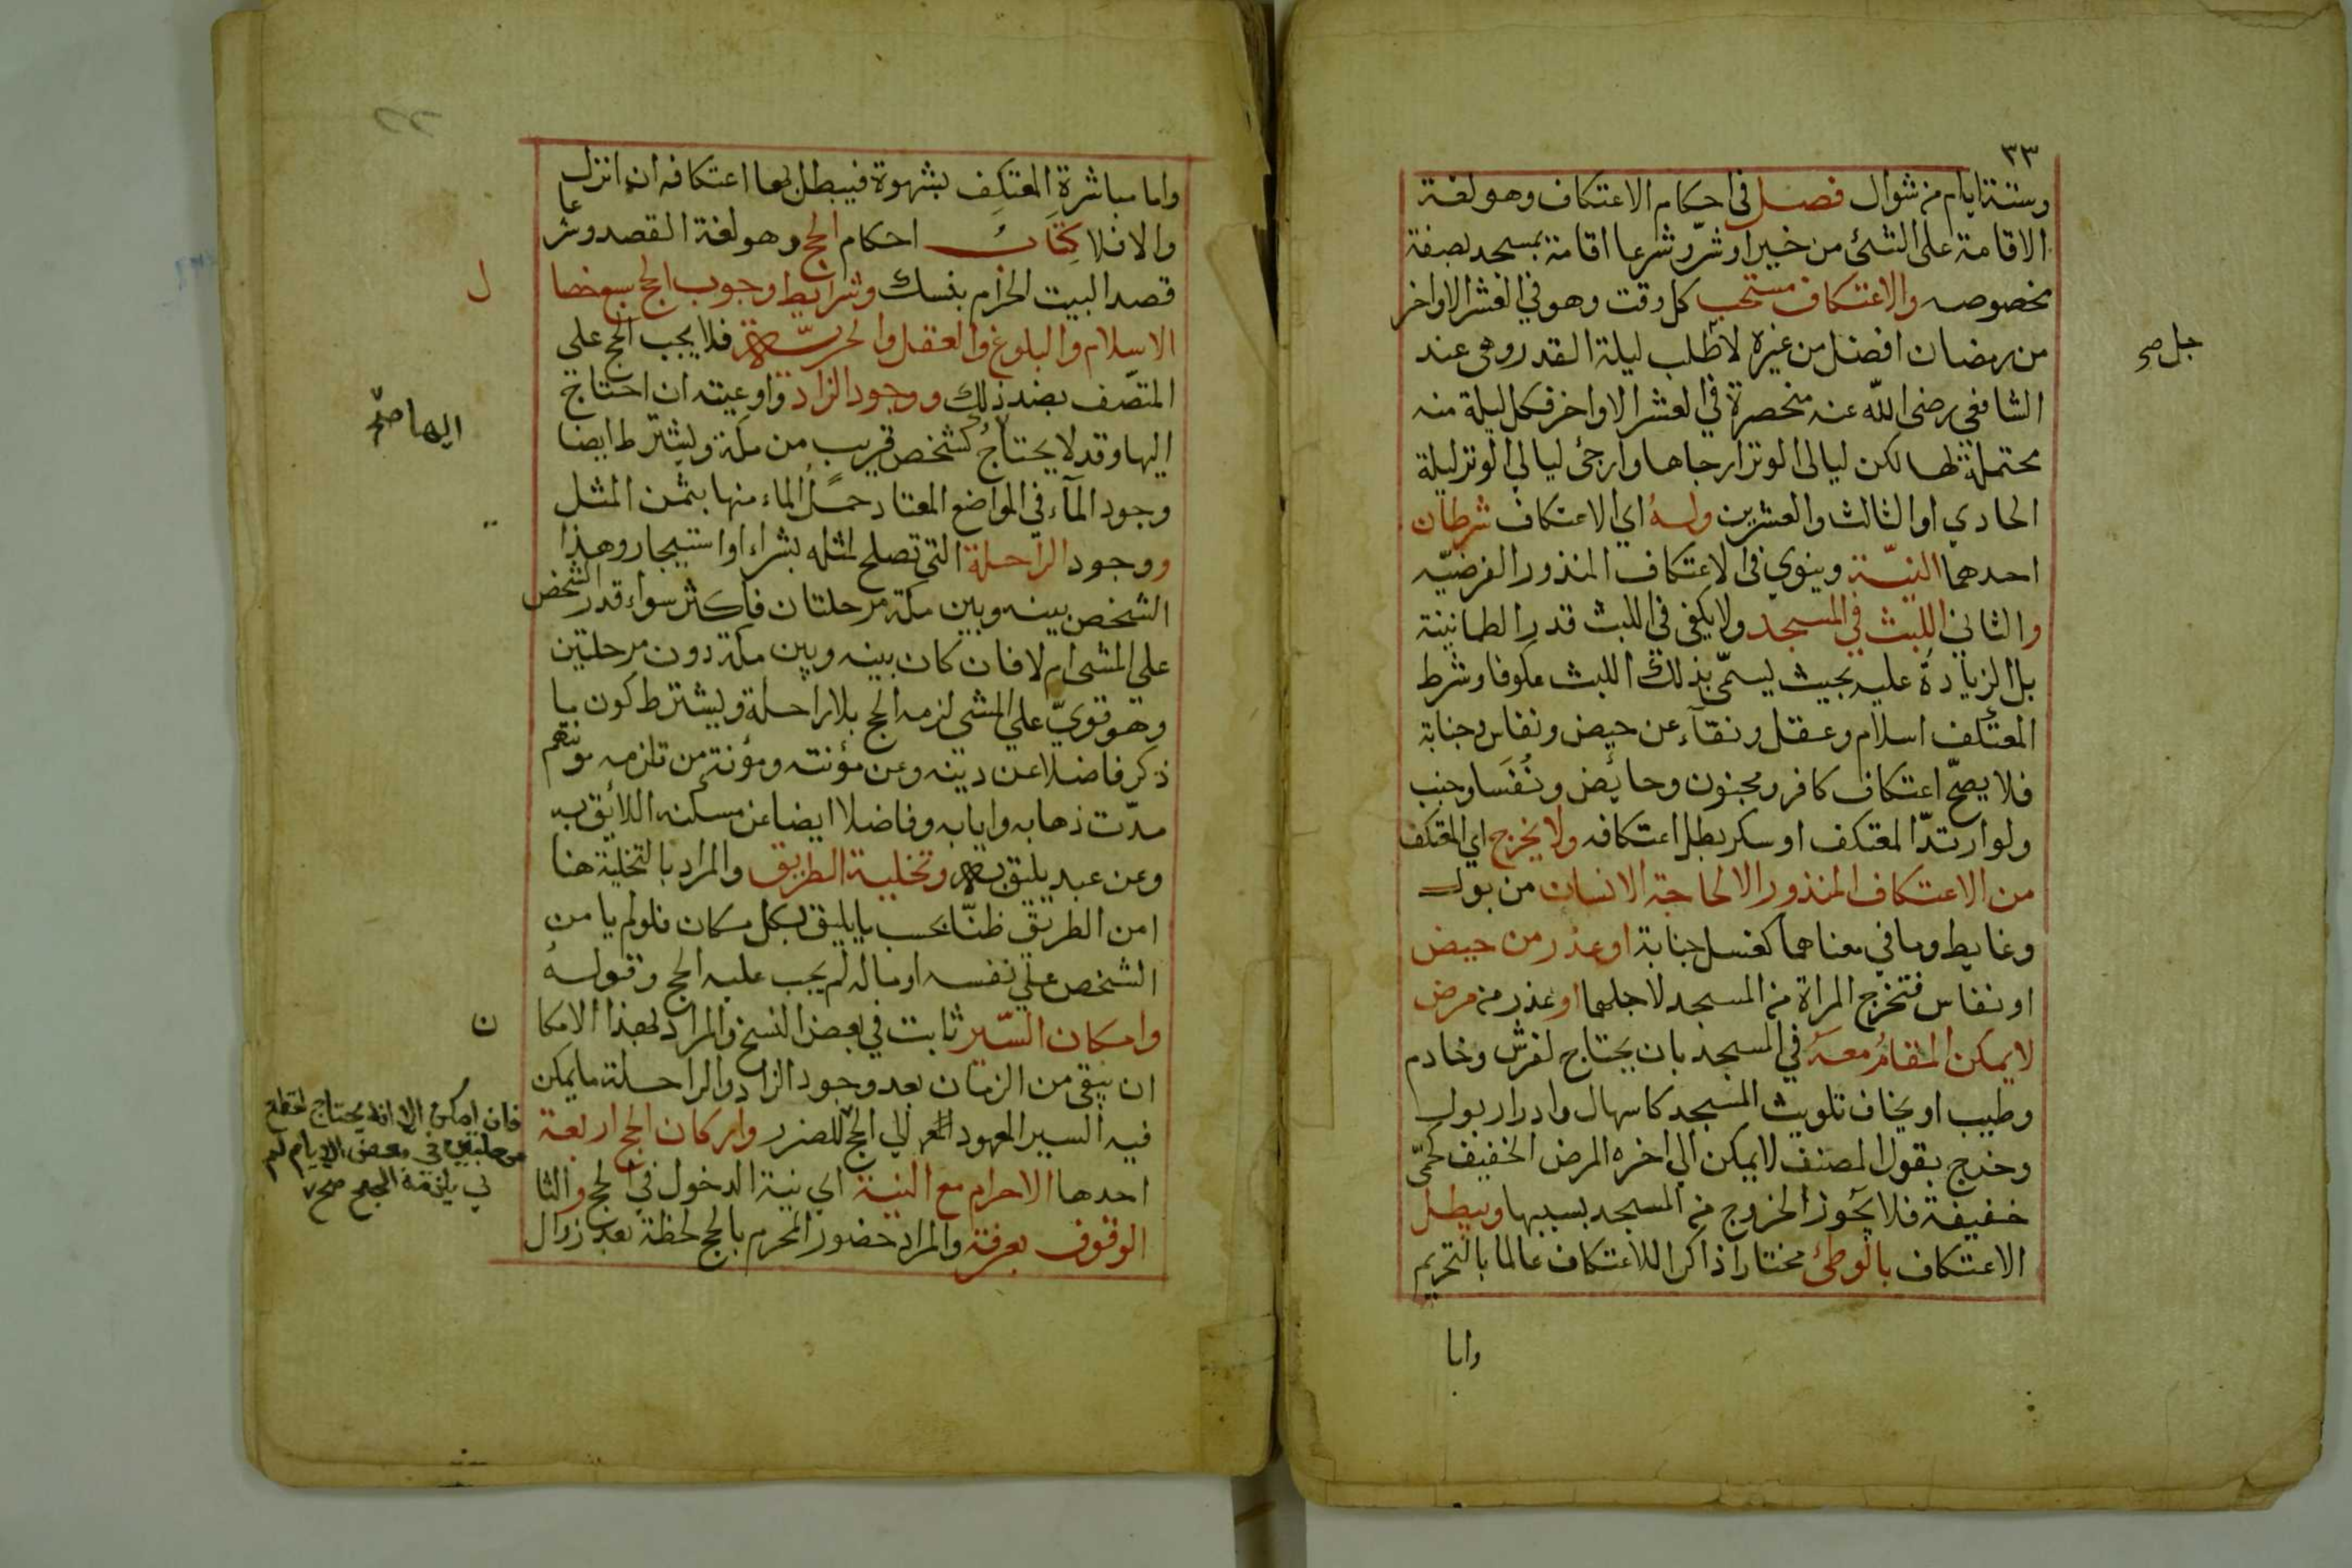 ٣٣
وستة ايام من شوال فصل في احكام الاعتكاف وهو لغة
الاقامة على الشئ من خير او شرّ وشرعا اقامة بمسجد بصفة
مخصوصه والاعتكاف مستحب كل وقت وهو في العشر الاواخر
من رمضان افضل من غيره لاطلب ليلة القدر وهى عند
جل صح
الشافعي رضى اللّه عنه منحصرة في العشر الاواخر فكل ليلة منه
محتملة لها لكن ليالى الوتر ارجاها وارجئ ليالي الوتر ليلة
الحادي او الثالث والعشرين وله اي الاعتكاف شرطان
احدهما النيّة وينوي في الاعتكاف المنذور الفرضيّه
والثاني اللبث في المسجد ولا يكفي في اللبث قدر الطمانينة
بل الزيادة عليه بحيث يسمّى بذلك اللبث عكوفا وشرط
المعتكف اسلام وعقل ونقآء عن حيض ونفاس وجنابة
فلا يصحّ اعتكاف كافر ومجنون وحايض ونُفَسا وجنب
ولو ارتدّ المعتكف او سكر بطل اعتكافه ولا يخرج اي المعتكف
من الاعتكاف المنذور الا لحاجة الانسان من بول
وغايط وما في معناهما كغسل جنابة او عذر من حيض
او نفاس فتخرج المراة من المسجد لاجلهما او عذر من مرض
لا يمكن المقامُ معهُ في المسجد بان يحتاج لفرش وخادم
وطبيب او يخاف تلويث المسجد كاسهال وادرار بول
وخرج بقول المصنف لا يمكن الي اخره المرض الخفيف كحمّى
خفيفة فلا يجوز الخروج من المسجد بسببها ويبطل
الاعتكاف بالوطئ مختارا ذاكرا للاعتكاف عالما بالتحريم
واما
واما مباشرة المعتكِف بشهوة فيبطل بها اعتكافه ان انزل
والا فلا كِتَابُ احكام الحج وهو لغة القصد وشرعا
قصد البيت الحرام بنسك وشرايط وجوب الحج سبع خصا
ل
الاسلام والبلوغ والعقل والحريّة فلا يجب الحج علي
المتصّف بضد ذلك ووجود الزاد واوعيته ان احتاج
اليها صحّ
اليها وقد لا يحتاج كشخص قريب من مكة ويشترط ايضا
وجود المآء في المواضع المعتاد حملُ الماء منها بثمن المثل
ووجود الراحلة التي تصلح لمثله بشراء او استيجار وهذا
الشخص بينه وبين مكة مرحلتان فاكثر سواء قدر الشخص
على المشى ام لا فان كان بينه وبين مكة دون مرحلتين
وهو قويّ علي المشي لزمه الحج بلا راحلة ويشترط كون ما
ذكر فاضلا عن دينه وعن مؤنته ومؤنة من تلزمه مؤنتهم
مدّت ذهابه وايابه وفاضلا ايضا عن مسكنه اللائق به
وعن عبد يليق به وتخلية الطريق والمراد بالتخلية هنا
امن الطريق ظنّا بحسب ما يليق بكل مكان فلو لم يامن
الشخص علي نفسه او ماله لم يجب عليه الحج وقولهُ
وامكان السّير ثابت في بعض النسخ والمراد بهذا الامكا
ن
ان يبقى من الزمان بعد وجود الزاد والراحلة ما يمكن
فيه السير المعهود الي الحج للضرر واركان الحج اربعة
فان امكن الا انه يحتاج لقطع
مرحلتين في بعض الايام لم
يلزمه الحج صح
احدها الاحرام مع النية اي نية الدخول في الحج والثا
ني
الوقوف بعرفة والمراد حضور المحرم بالحج لحظة بعد زوال